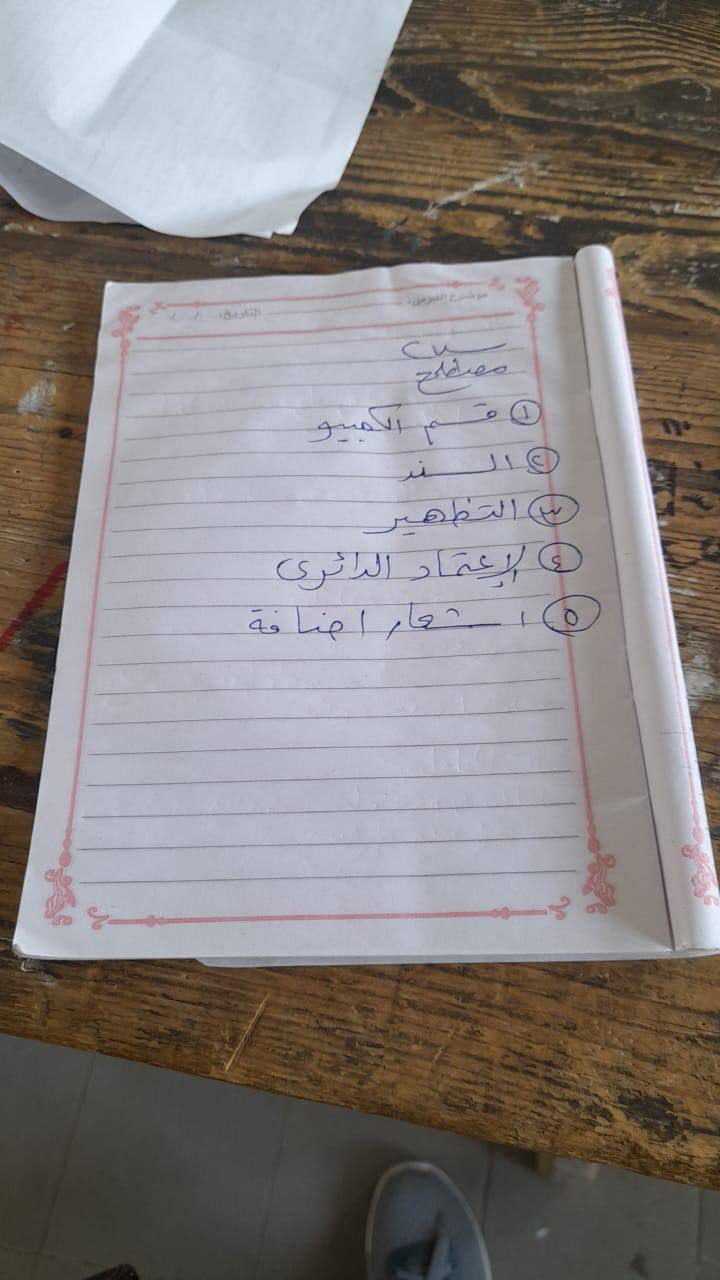 موضوع الدرس: التاريخ: / /
مصطلح
① قسم الكمبيو
② السند
③ التظهير
④ الإعتماد الدائرى
⑤ اشعار اضافة